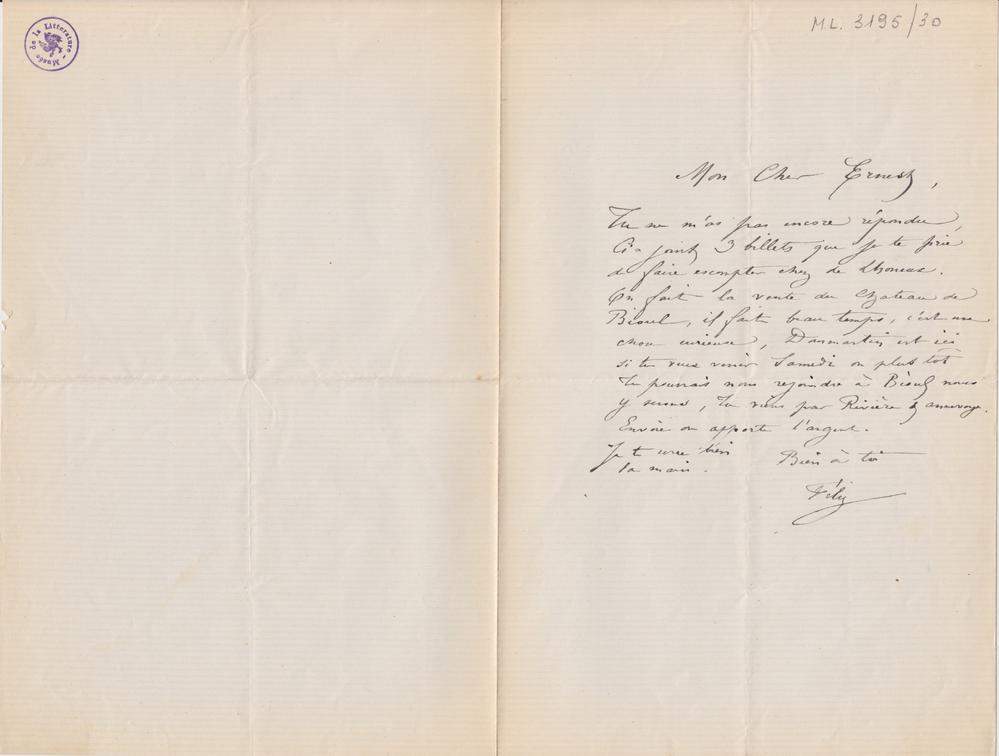 Musée de la Littérature
M.L. 3195/30
Mon Cher Ernest,
Tu ne m'as pas encore répondu,
Ci-joint 3 billets que je te prie
de faire escompter chez de Lhoneux.
On fait la vente du Chateau de
Bioul, il fait beau temps, c'est une
chose curieuse, Danmartin est ici
si tu veux venir Samedi ou plus tôt
Tu pourrais nous rejoindre à Bioul nous
y serons, tu viens par Rivière & annevoye.
Envoie ou apporte l'argent.
Je te serre bien
la main.
Bien à toi
Féliz